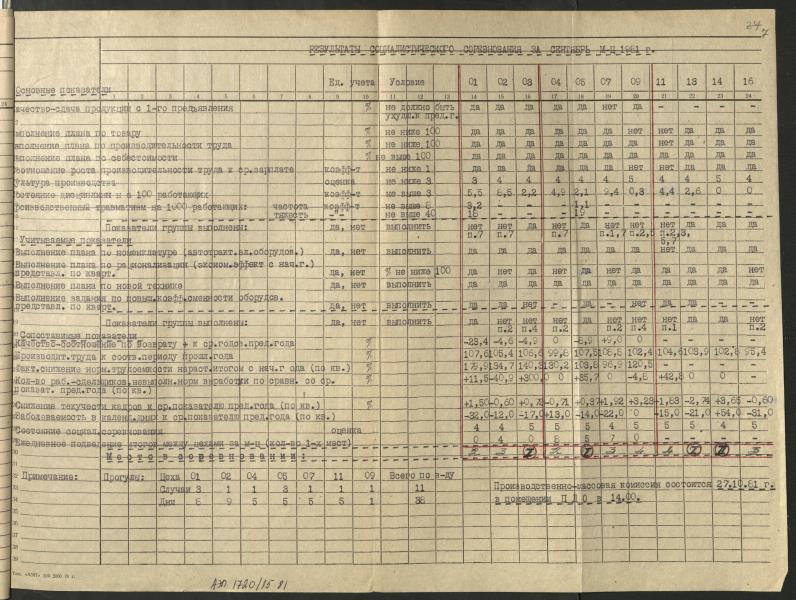 24
7
РЕЗУЛЬТАТЫ СОЦИАЛИСТИЧЕСКОГО СОРЕВНОВАНИЯ ЗА СЕНТЯБРЬ М-Ц 1981 г.
Основные показатели Ед. учета Условие 01 02 03 04 05 07 09 11 13 14 16
1 2 3 4 5 6 7 8 9 10 11 12 13 14 15 16 17 18 19 20 21 22 23 24
чество-сдача продукции с 1-го предъявления % не должно быть да да да да да нет да - - - -
ухудш.к пред.г.
ыполнение плана по товару % не ниже 100 да да да да да да нет нет да да да
ыполнение плана по производительности труда % не ниже 100 да да да да да да да нет да да да
ыполнение плана по себестоимости % не выше 100 да да да да да да да да да да да
оотношение роста производительности труда к ср.зарплате коэфф-т не ниже 1 да да да да да да нет нет да да да
ультура производства оценка не ниже 3 3 4 4 4 4 4 5 4 4 5 4
отояние дисциплин н а 100 работающих коэфф-т не выше 3 5,5 8,5 2,2 4,9 2,1 9,4 0,3 4,4 2,6 0 0
роизводственный травматизм на 1000 работающих: частота коэфф-т не выше 3,2 - - - 1,1 - - - - - -
тяжесть -"- не выше 40 18 - - - 19 - - - - - -
Показатели группы выполнены: да, нет выполнить нет нет да нет да нет нет нет да да да
п.7 п.7 п.7 п.1,7 п.2,5 п.2,3,
5,7
Учитываемые показатели
Выполнение плана по номенклатуре (автотракт.эл.оборудов.) да, нет выполнить да да да да да да да нет да да да
Выполнение плана по рационализации (эконом.эффект с нач.г.)
представл. по кварт. да, нет % не ниже 100 да нет да да да нет нет да да да нет
Выполнение плана по новой технике да, нет выполнить да да да да да да да да да да да
Выполнение задания по повыш.коэфф.сменности оборудов.
представл. по кварт. да, нет выполнить да да нет - да - нет да да - -
Показатели группы выполнены: да, нет выполнить да нет нет да да нет нет нет да да нет
п.2 п.4 п.2 п.4 п.1 п.2
Сопоставимые показатели
Качество-соотношение по возврату + к ср.годов.пред.года % -23,4 -4,6 -4,9 0 -8,9 +9,0 0 - - - -
Производит.труда к соотв.периоду прошл.года % 107,6 105,4 106,6 99,8 107,5 102,4 104,6 103,9 102,8 95,4
Факт.снижение норм.трудоемкости нараст.итогом с нач.г ода (по кв.) % 179,9 134,7 140,3 130,2 103,8 96,9 120,5 - - - -
Кол-во раб.-сдельщиков,невыполн.норм выработки по сравн. со ср. % +11,5 -40,9 +300,0 0 +35,7 0 -4,8 +42,8 0 - -
показат. пред.года (по кв.)
Снижение текучести кадров к ср.показателю пред.года (по кв.) % +1,50 -0,60 +0,73 -0,71 +0,37 +1,92 +3,23 -1,83 -2,74 +3,65 -0,60
Заболеваемость в календ.днях к ср.показателю пред.года (по кв.) -32,0 -12,0 -17,0 +13,0 -14,0 -22,0 0 -15,0 -21,0 +54,0 -31,0
Состояние социал.соревнования оценка 4 4 5 5 5 4 5 5 5 4 5
Ежедневное подведение итогов между цехами за м-ц (кол-во 1-х мест) 0 4 0 8 5 7 0 - - - -
Место в соревновании:
Примечание: Прогулы: Цеха 01 02 04 05 07 11 09 Всего по з-ду
Случаи 3 1 1 3 1 1 1 11
Дни 8 9 5 5 5 5 1 38
Производственно-массовая комиссия состоится 27.10.81 г.
в помещении П Д О в 14.00.
АЗП 1720/15 81